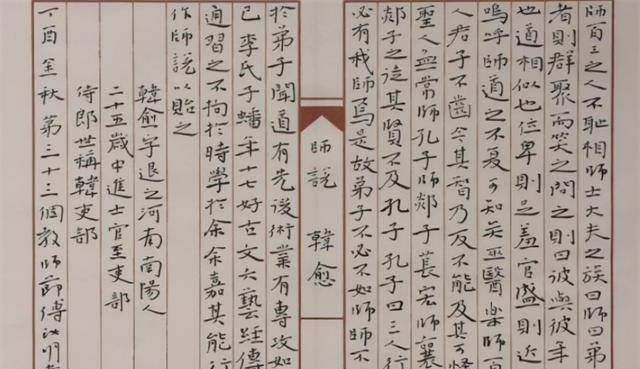 師百工之人不耻相師士大夫之族曰師曰弟
者則群聚而笑之問之則曰彼與彼年
也道相似也位卑則足羞官盛則近
嗚呼師道之不復可知矣巫醫樂師百
人君子不齒今其智乃反不能及其可怪
聖人無常師孔子師郯子萇宏師襄
郯子之徒其賢不及孔子孔子曰三人行
必有我師焉是故弟子不必不如師師不
師說 韓愈
於弟子聞道有先後術業有專攻如
已李氏子蟠年十七好古文六藝經傳
通習之不拘於時學於余余嘉其能行
作師說以貽之
韓愈字退之河南南陽人
二十五歲中進士官至吏部
侍郎世稱韓吏部
丁酉金秋第三十三個教師節傅